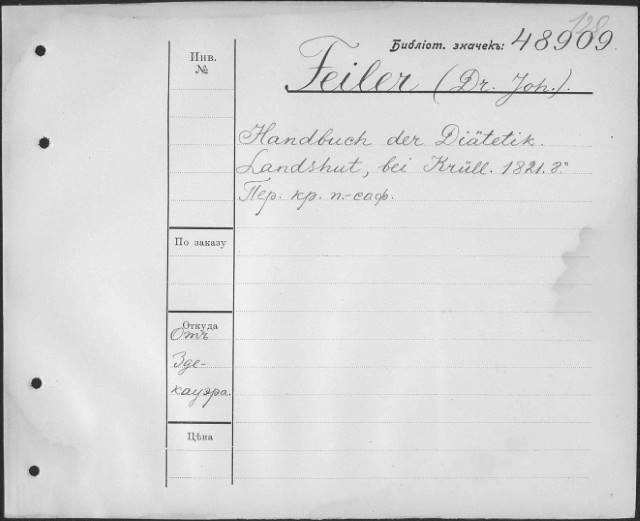 128
Библіот. значекъ: 48909.
Инв. №
Feiler (Dr. Joh.).
Handbuch der Diätetik.
Landshut, bei Krüll. 1821. 8.°
Пер. кр. п.-саф.
По заказу
Откуда
Отъ
Зде-
кауэра.
Цѣна